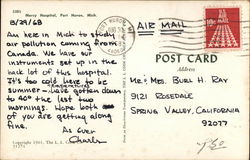 Mercy Hospital, Port Huron, Mich.
8/29/68
Am here in Mich to study
our pollution coming from
Canada. We have our
instruments set up in the
back lot of this hospital.
It's too cold here to be
summer - have gotten down
TEMPERATURES
to 40° the last two
mornings. Hope both
of you are getting along
fine.
As Ever
Charles
AIR MAIL
10c
POST CARD
Address
Mr. & Mrs. Buel H. Ray
9121 Rosedale
Spring Valley, California
92077